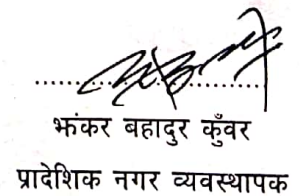 झंकर बहादुर कुँवर
प्रादेशिक नगर व्यवस्थापक